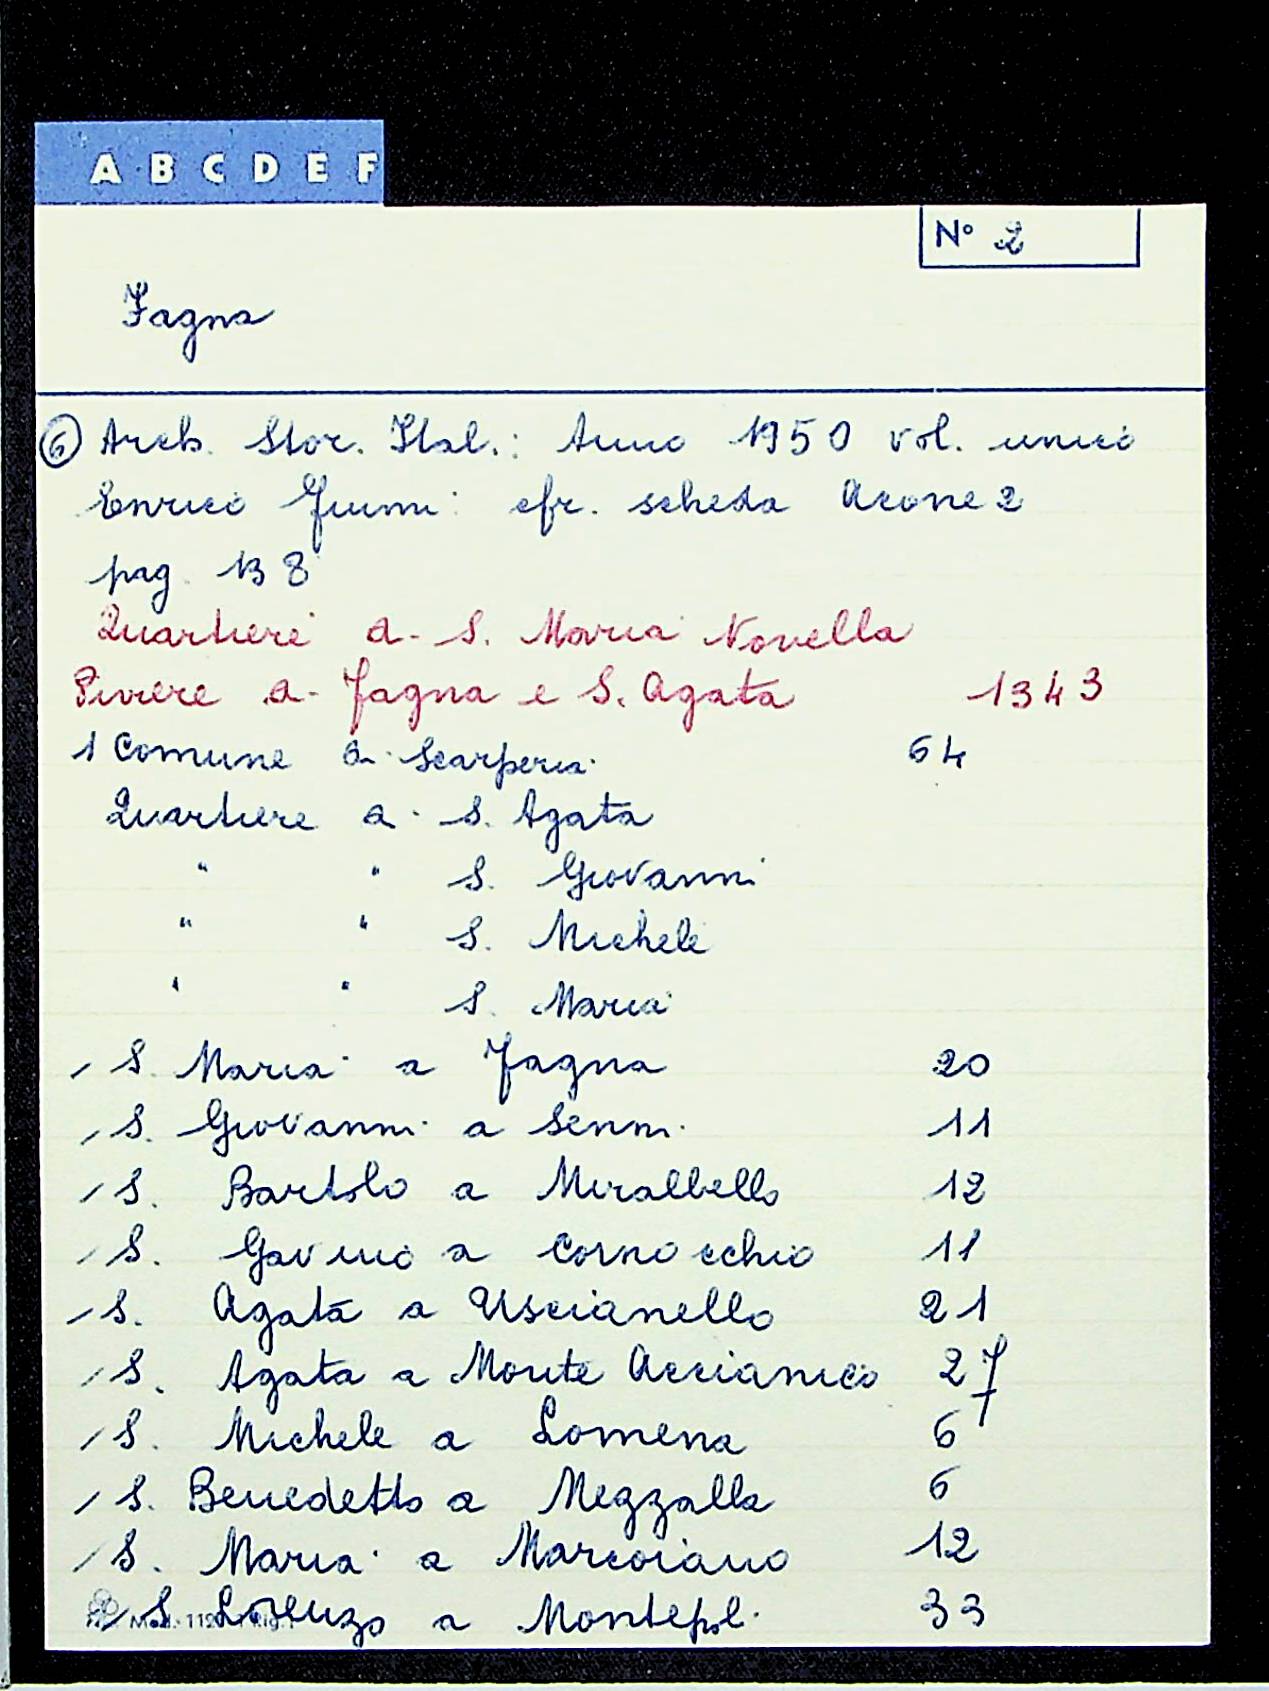 A B C D E F
N° 2
Fagna
6 Arch. Stor. Ital.: Anno 1950 vol. unico
Enrico Fiumi: cfr. scheda Acone 2
pag. 138
Quartiere di S. Maria Novella
Piviere di Fagna e S. Agata 1343
1 Comune di Scarperia 64
Quartiere di S. Agata
" " S. Giovanni
" " S. Michele
" " S. Maria
/ S. Maria a Fagna 20
/ S. Giovanni a Senni 11
/ S. Bartolo a Miralbello 12
/ S. Gavino a Cornocchio 11
/ S. Agata a Uscianello 21
/ S. Agata a Monte Accianico 27
/ S. Michele a Lomena 6
/ S. Benedetto a Mezzalla 6
/ S. Maria a Marcoiano 12
/ S. Lorenzo a Montepol. 33